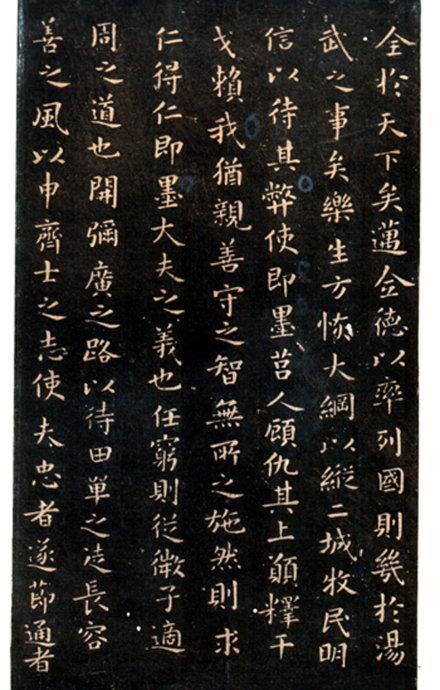 全於天下矣邁全德以率列國則幾於湯
武之事矣樂生方恢大綱以縱二城牧民明
信以待其弊使即墨莒人顧仇其上願釋干
戈賴我猶親善守之智無所之施然則求
仁得仁即墨大夫之義也任窮則從微子適
周之道也開彌廣之路以待田單之徒長容
善之風以申齊士之志使夫忠者遂節通者